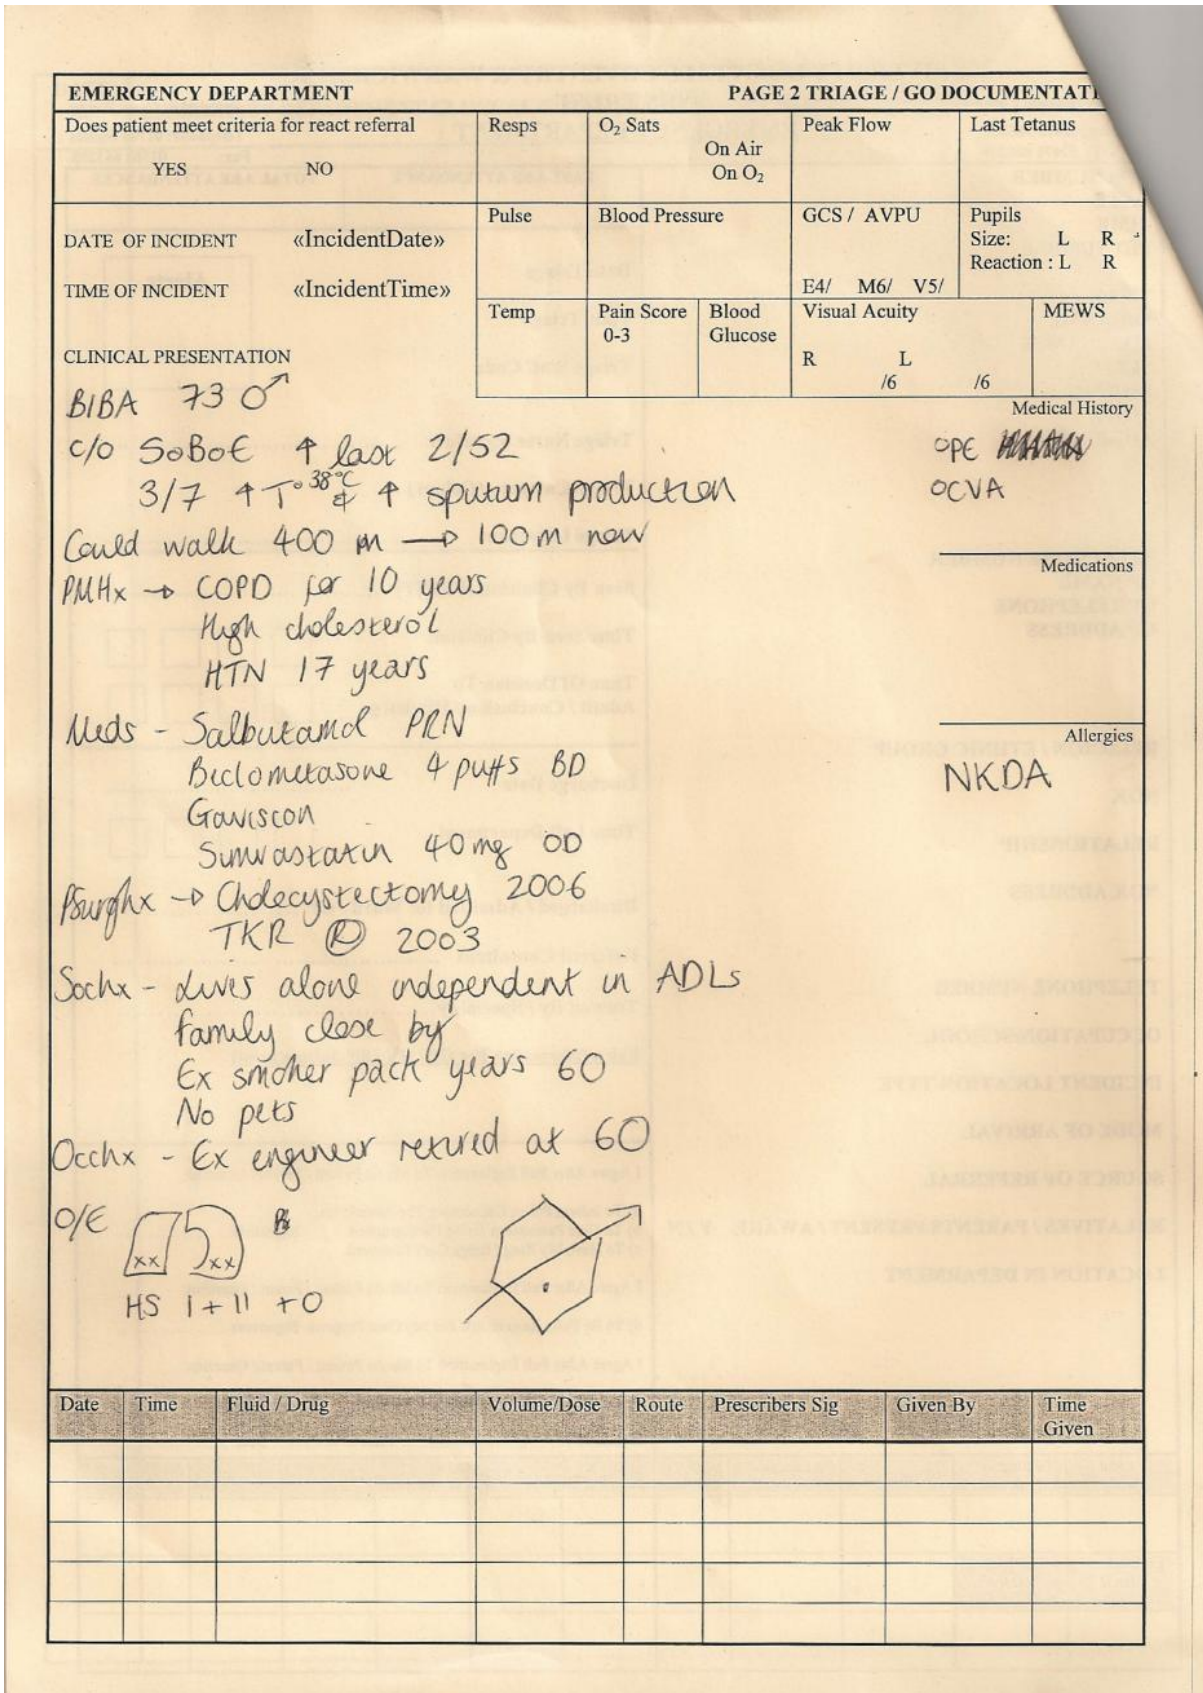 EMERGENCY DEPARTMENT PAGE 2 TRIAGE / GO DOCUMENTATI
Does patient meet criteria for react referral
YES NO
Resps
O₂ Sats
On Air
On O₂
Peak Flow
Last Tetanus
DATE OF INCIDENT «IncidentDate»
TIME OF INCIDENT «IncidentTime»
Pulse
Blood Pressure
GCS / AVPU
E4/ M6/ V5/
Pupils
Size: L R
Reaction : L R
Temp
Pain Score
0-3
Blood
Glucose
Visual Acuity
R L
/6 /6
MEWS
CLINICAL PRESENTATION
BIBA 73 ♂
c/o SoBoE ↑ last 2/52
3/7 ↑ T° 38°C & ↑ sputum production
Could walk 400 m → 100m now
PMHx → COPD for 10 years
High cholesterol
HTN 17 years
Meds - Salbutamol PRN
Beclometasone 4 puffs BD
Gaviscon
Simvastatin 40mg OD
PSurghx → Cholecystectomy 2006
TKR Ⓡ 2003
Sochx - Lives alone independent in ADLs
family close by
Ex smoker pack years 60
No pets
Occhx - Ex engineer retired at 60
O/E
xx xx
HS I + II + 0
Medical History
OPE
OCVA
Medications
Allergies
NKDA
Date Time Fluid / Drug Volume/Dose Route Prescribers Sig Given By Time
Given